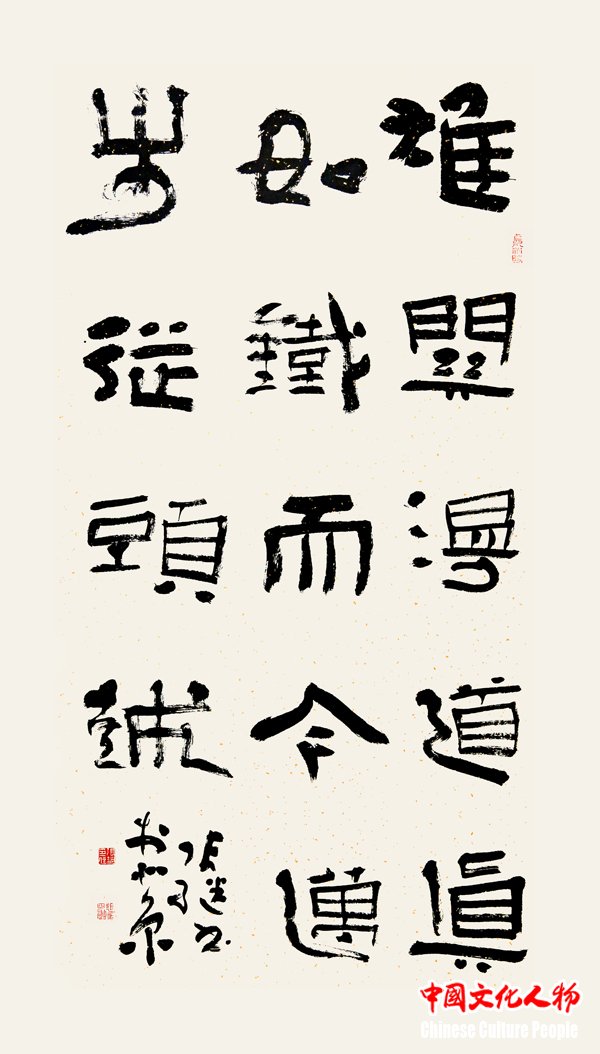 雄關漫道眞
如鐵而今邁
步從頭越
於北京
中國文化人物
Chinese Culture People